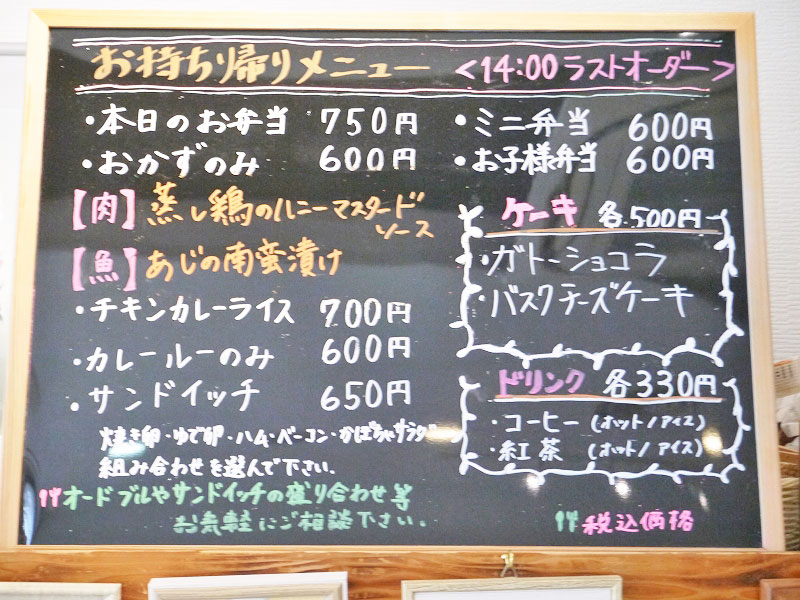 お持ち帰りメニュー <14:00 ラストオーダー>
・本日のお弁当 750円
・おかずのみ 600円
【肉】蒸し鶏のハニーマスタードソース
【魚】あじの南蛮漬け
・チキンカレーライス 700円
・カレールーのみ 600円
・サンドイッチ 650円
焼き卵・ゆで卵・ハム・ベーコン・かぼちゃサラダ
組み合わせを選んで下さい.
オードブルやサンドイッチの盛り合わせ等
お気軽にご相談下さい.
・ミニ弁当 600円
・お子様弁当 600円
ケーキ 各500円
・ガトーショコラ
・バスクチーズケーキ
ドリンク 各330円
・コーヒー (ホット/アイス)
・紅茶 (ホット/アイス)
税込価格